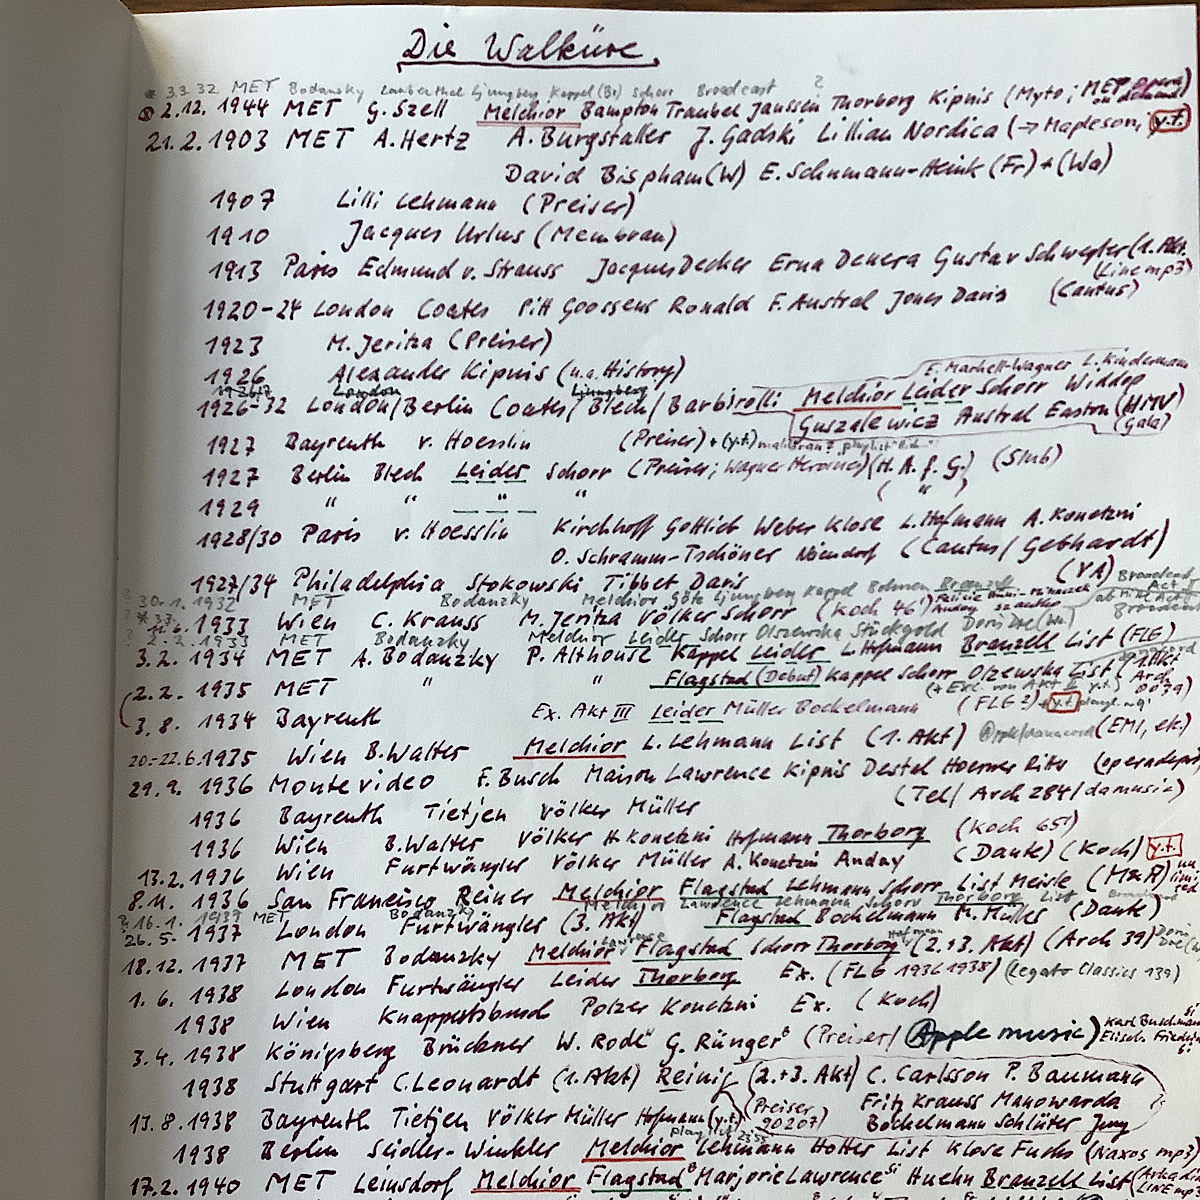 Die Walküre
* 3.3.32 MET Bodansky Laubenthal Ljungberg Kappel (Br) Schorr Broadcast ?
2.12. 1944 MET G. Szell Melchior Bampton Traubel Janssen Thorborg Kipnis (Myto; MET Opera on demand)
21.2. 1903 MET A. Hertz A. Burgstaller J. Gadski Lillian Nordica (→ Mapleson, y.t.)
David Bispham (W) E. Schumann-Heink (Fr) + (Wa)
1907 Lilli Lehmann (Preiser)
1910 Jacques Urlus (Membran)
1913 Paris Edmund v. Strauss Jacques Decker Erna Denera Gustav Schwegler (1. Akt.
(Line mp3)
1920-24 London Coates Pitt Goossens Ronald F. Austral Jones Davis (Cantus)
1923 M. Jeritza (Preiser)
1926 Alexander Kipnis (u.a. History)
E. Marhell-Wagner L. Kindermann
1926-32 London/Berlin Coates/Blech/Barbirolli Melchior Leider Schorr Widdop
Guszalewicz Austral Easton (HMV)
(Gala)
1927 Bayreuth v. Hoesslin (Preiser) + (y.t.)
1927 Berlin Blech Leider Schorr (Preiser; Wagner Heroines) (H.A.f.G.) (Slub)
1929 " " " " ( " )
1928/30 Paris v. Hoesslin Kirchhoff Gottlieb Weber Klose L. Hofmann A. Konetzni
O. Schramm-Tschörner Niendorf (Cantus/Gebhardt)
1927/34 Philadelphia Stokowski Tibbet Davis (VA)
? 30.1. 1932 MET Bodanzky Melchior Göta Ljungberg Kappel Bohnen Branzell
1933 Wien C. Krauss M. Jeritza Völker Schorr (Koch 46)
1933 MET Bodanzky Melchior Leider Schorr Olszewska Stückgold Doris Doe
3.2. 1934 MET A. Bodanzky P. Althouse Kappel Leider L. Hofmann Branzell List (FLE)
2.2. 1935 MET " " Flagstad (Debut) Kappel Schorr Olzewska List (1. Akt Arch 0039)
3.8. 1934 Bayreuth Ex. Akt III Leider Müller Bockelmann (FLG 2) y.t.
20.-22.6. 1935 Wien B. Walter Melchior L. Lehmann List (1. Akt) (EMI, etc.)
29.9. 1936 Montevideo F. Busch Maison Lawrence Kipnis Destal Hoerner Rito
(Tel/ Arch 284/damusic)
1936 Bayreuth Tietjen Völker Müller
1936 Wien B. Walter Völker H. Konetzni Hofmann Thorborg (Koch 651)
13.2. 1936 Wien Furtwängler Völker Müller A. Konetzni Anday (Dante) (Koch) y.t.
8.11. 1936 San Francisco Reiner Melchior Flagstad Lehmann Schorr List Meisle (M&A)
? 16.1. 1937 MET Bodanzky Melchior Lawrence Lehmann Schorr Thorborg List
26.5. 1937 London Furtwängler (3. Akt) Flagstad Bockelmann M. Müller (Dante)
18.12. 1937 MET Bodanzky Melchior Lawrence Flagstad Schorr Hofmann Thorborg (2.+3. Akt) (Arch 39)
1.6. 1938 London Furtwängler Leider Thorborg Ex. (FLG 1936 1938) (Legato Classics 139)
1938 Wien Knappertsbusch Polzer Konetzni Ex. (Koch)
3.4. 1938 Königsberg Brückner W. Rode G. Rünger (Preiser/ Apple music)
1938 Stuttgart C. Leonardt (1. Akt) Reinig (2.+3. Akt) C. Carlsson P. Baumann
Fritz Krauss Manowarda
(Preiser 90207)
13.8. 1938 Bayreuth Tietjen Völker Müller Hofmann (y.t.) Bockelmann Schlüter Jung
1938 Berlin Seidler-Winkler Melchior Lehmann Hotter List Klose Fuchs (Naxos mp3)
17.2. 1940 MET Leinsdorf Melchior Flagstad Marjorie Lawrence Huehn Branzell List